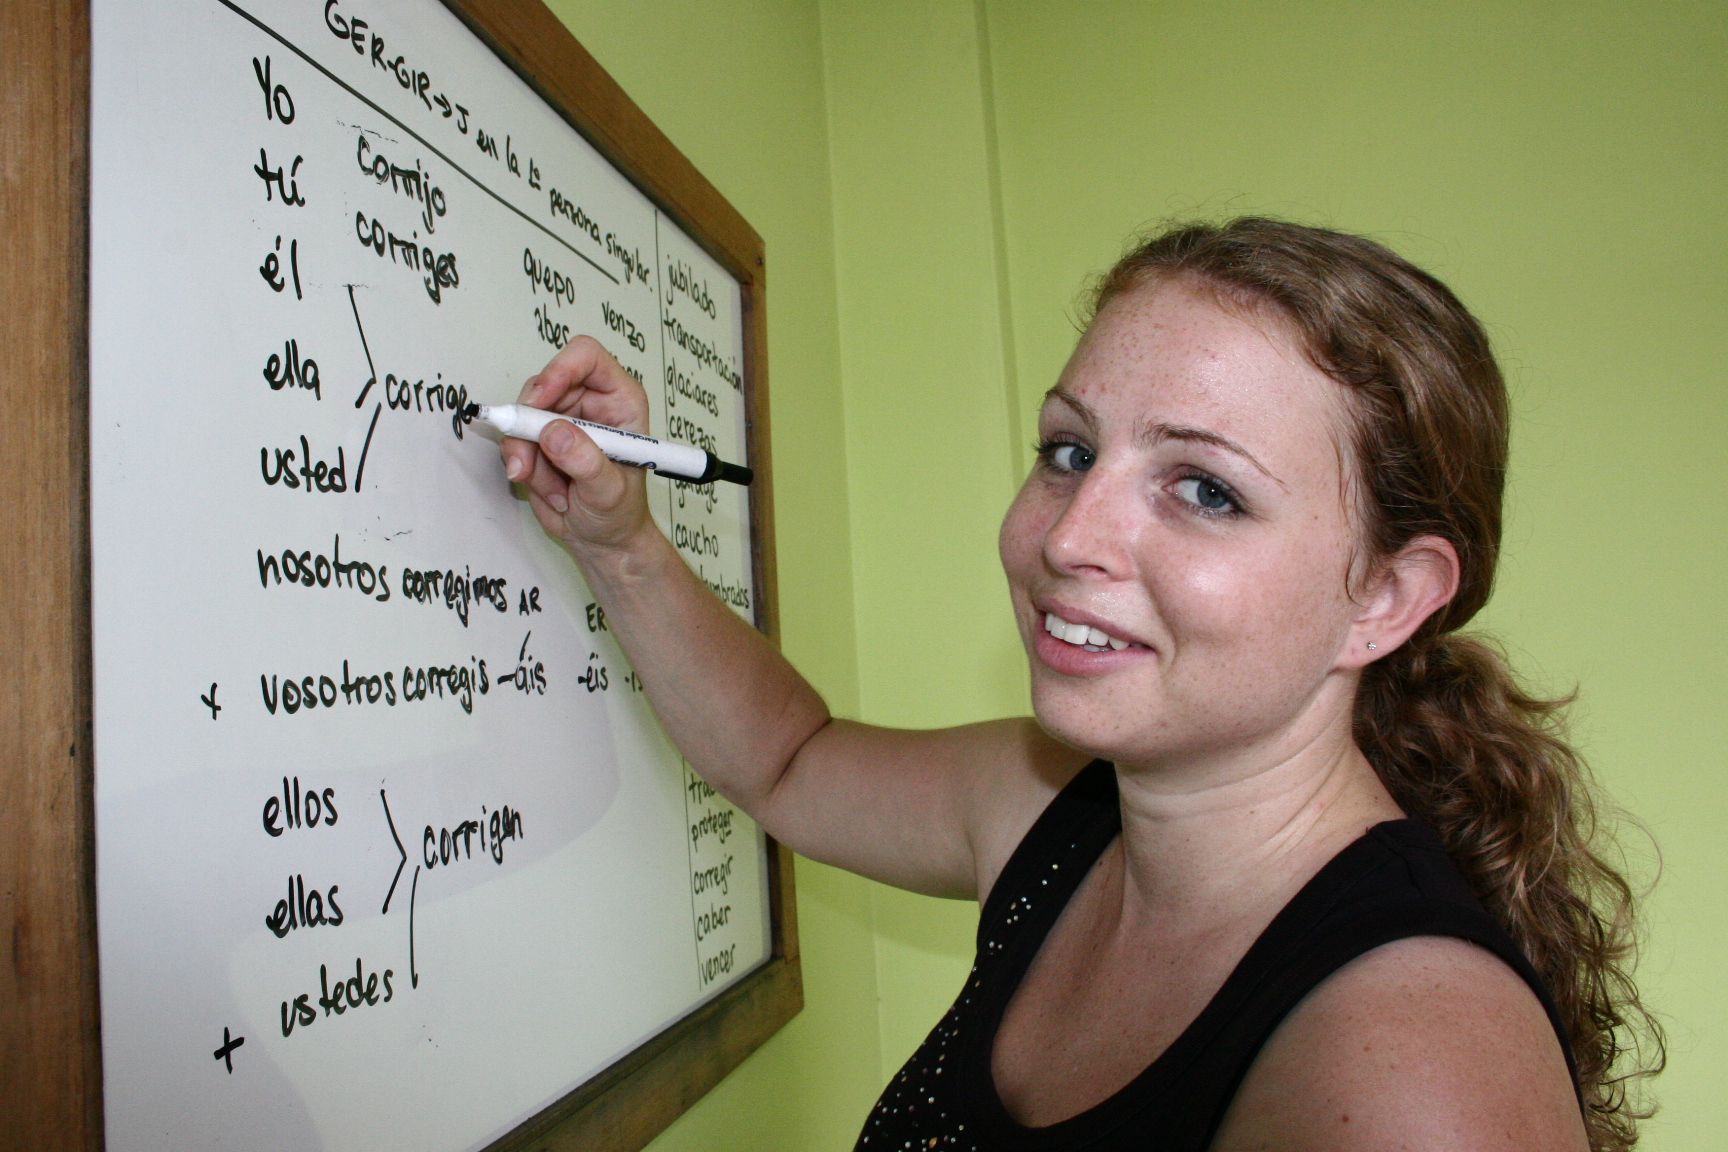 GER-GIR→J en la 1ª persona singular.
Yo corrijo
tú corriges
él
ella corrige
usted
nosotros corregimos
vosotros corregís -áis -éis
AR ER
ellos
ellas corrigen
ustedes
quepo venzo
jubilado
transportación
glaciares
cerezas
garage
caucho
proteger
corregir
caber
vencer
Marcador Borrable